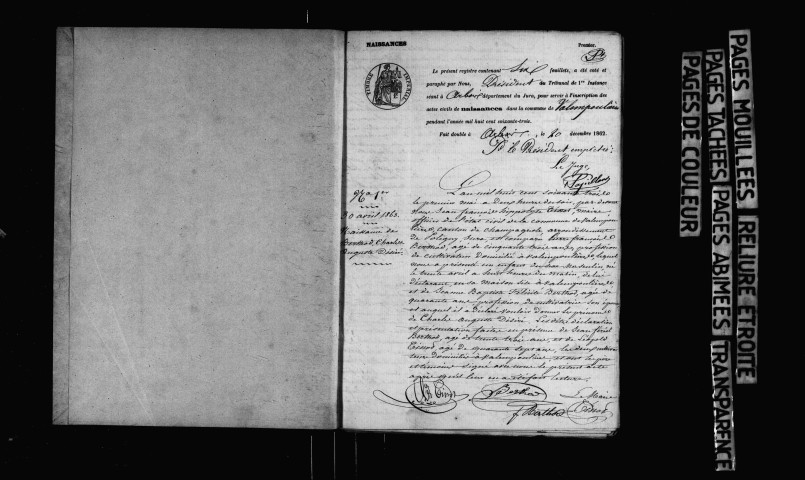 NAISSANCES
Premier.
TIMBRE IMPERIAL
Le présent registre contenant Six feuillets, a été coté et
paraphé par Nous, Président du Tribunal de 1re Instance
séant à Arbois département du Jura, pour servir à l'inscription des
actes civils de naissances dans la commune de Valempoulière
pendant l'année mil huit cent soixante-trois.
Fait double à Arbois, le 20 décembre 1862.
Pr le Président empêché:
Le Juge,
No 1er
30 avril 1863.
Naissance de
Berthod, Charles
Auguste Désiré
L'an mil huit cent soixante trois
le premier mai à deux heures du soir, par devant
Nous Jean françois hippolyte maire
officier de l'état civil de la commune de Valempou
lière, canton de Champagnole, arrondissement
de Poligny, Jura, est comparu Pierre françois
Berthod, âgé de cinquante trois ans, profession
de cultivateur domicilié à Valempoulière, lequel
nous a présenté un enfant du sexe Masculin né
le trente avril à huit heures du matin, de lui
déclarant, en sa maison sise à Valempoulière
et de Jeanne Baptiste Félicité Berthod, âgée de
quarante ans profession de cultivatrice son épouse
et auquel il a déclaré vouloir donner les prénoms
de Charles Auguste Désiré. Les dites déclaration
et présentation faites en présence de Jean
Berthod, âgé de trente trois ans, et de Léopold
âgé de quarante sept ans, les deux
domiciliés à Valempoulière, et ont le père
et témoins signé avec nous le présent acte
après qu'il leur en a été fait lecture.
Berthod
Le Maire
PAGES MOUILLEES RELIURE ETROITE
PAGES TACHEES PAGES ABIMEES TRANSPARENCE
PAGES DE COULEUR